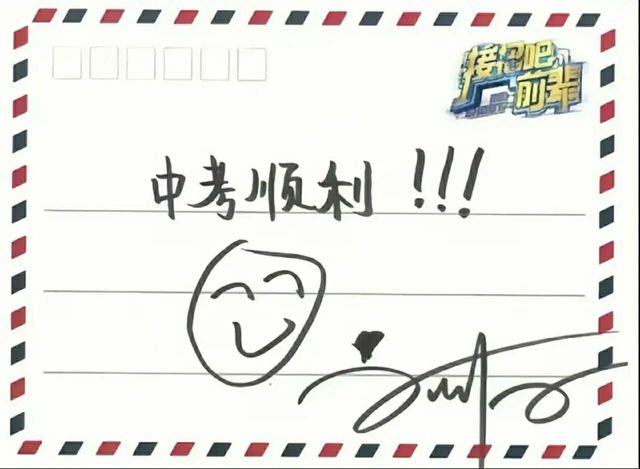 接招吧
前辈
中考顺利!!!